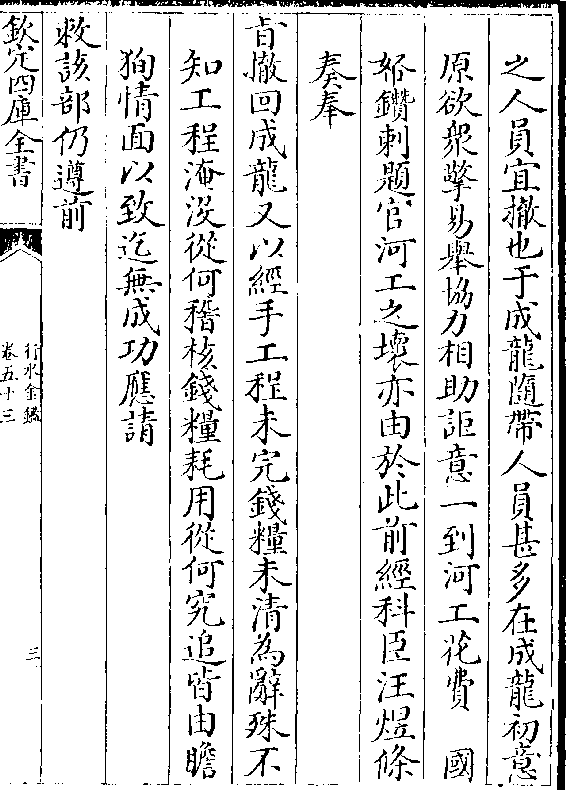 之人員宜撤也于成龍隨帶人員甚多在成龍初意
原欲衆擎易舉協力相助詎意一到河工花費　國
帑鑽刺題官河工之壞亦由於此前經科臣汪煜條
奏奉
㫖撤回成龍又以經手工程未完錢糧未清為辭殊不
知工程淹沒從何稽核錢糧耗用從何究追皆由瞻
狥情面以致迄無成功應請
敕該部仍遵前
欽定四庫全書
行水金鑑
卷五十三
三